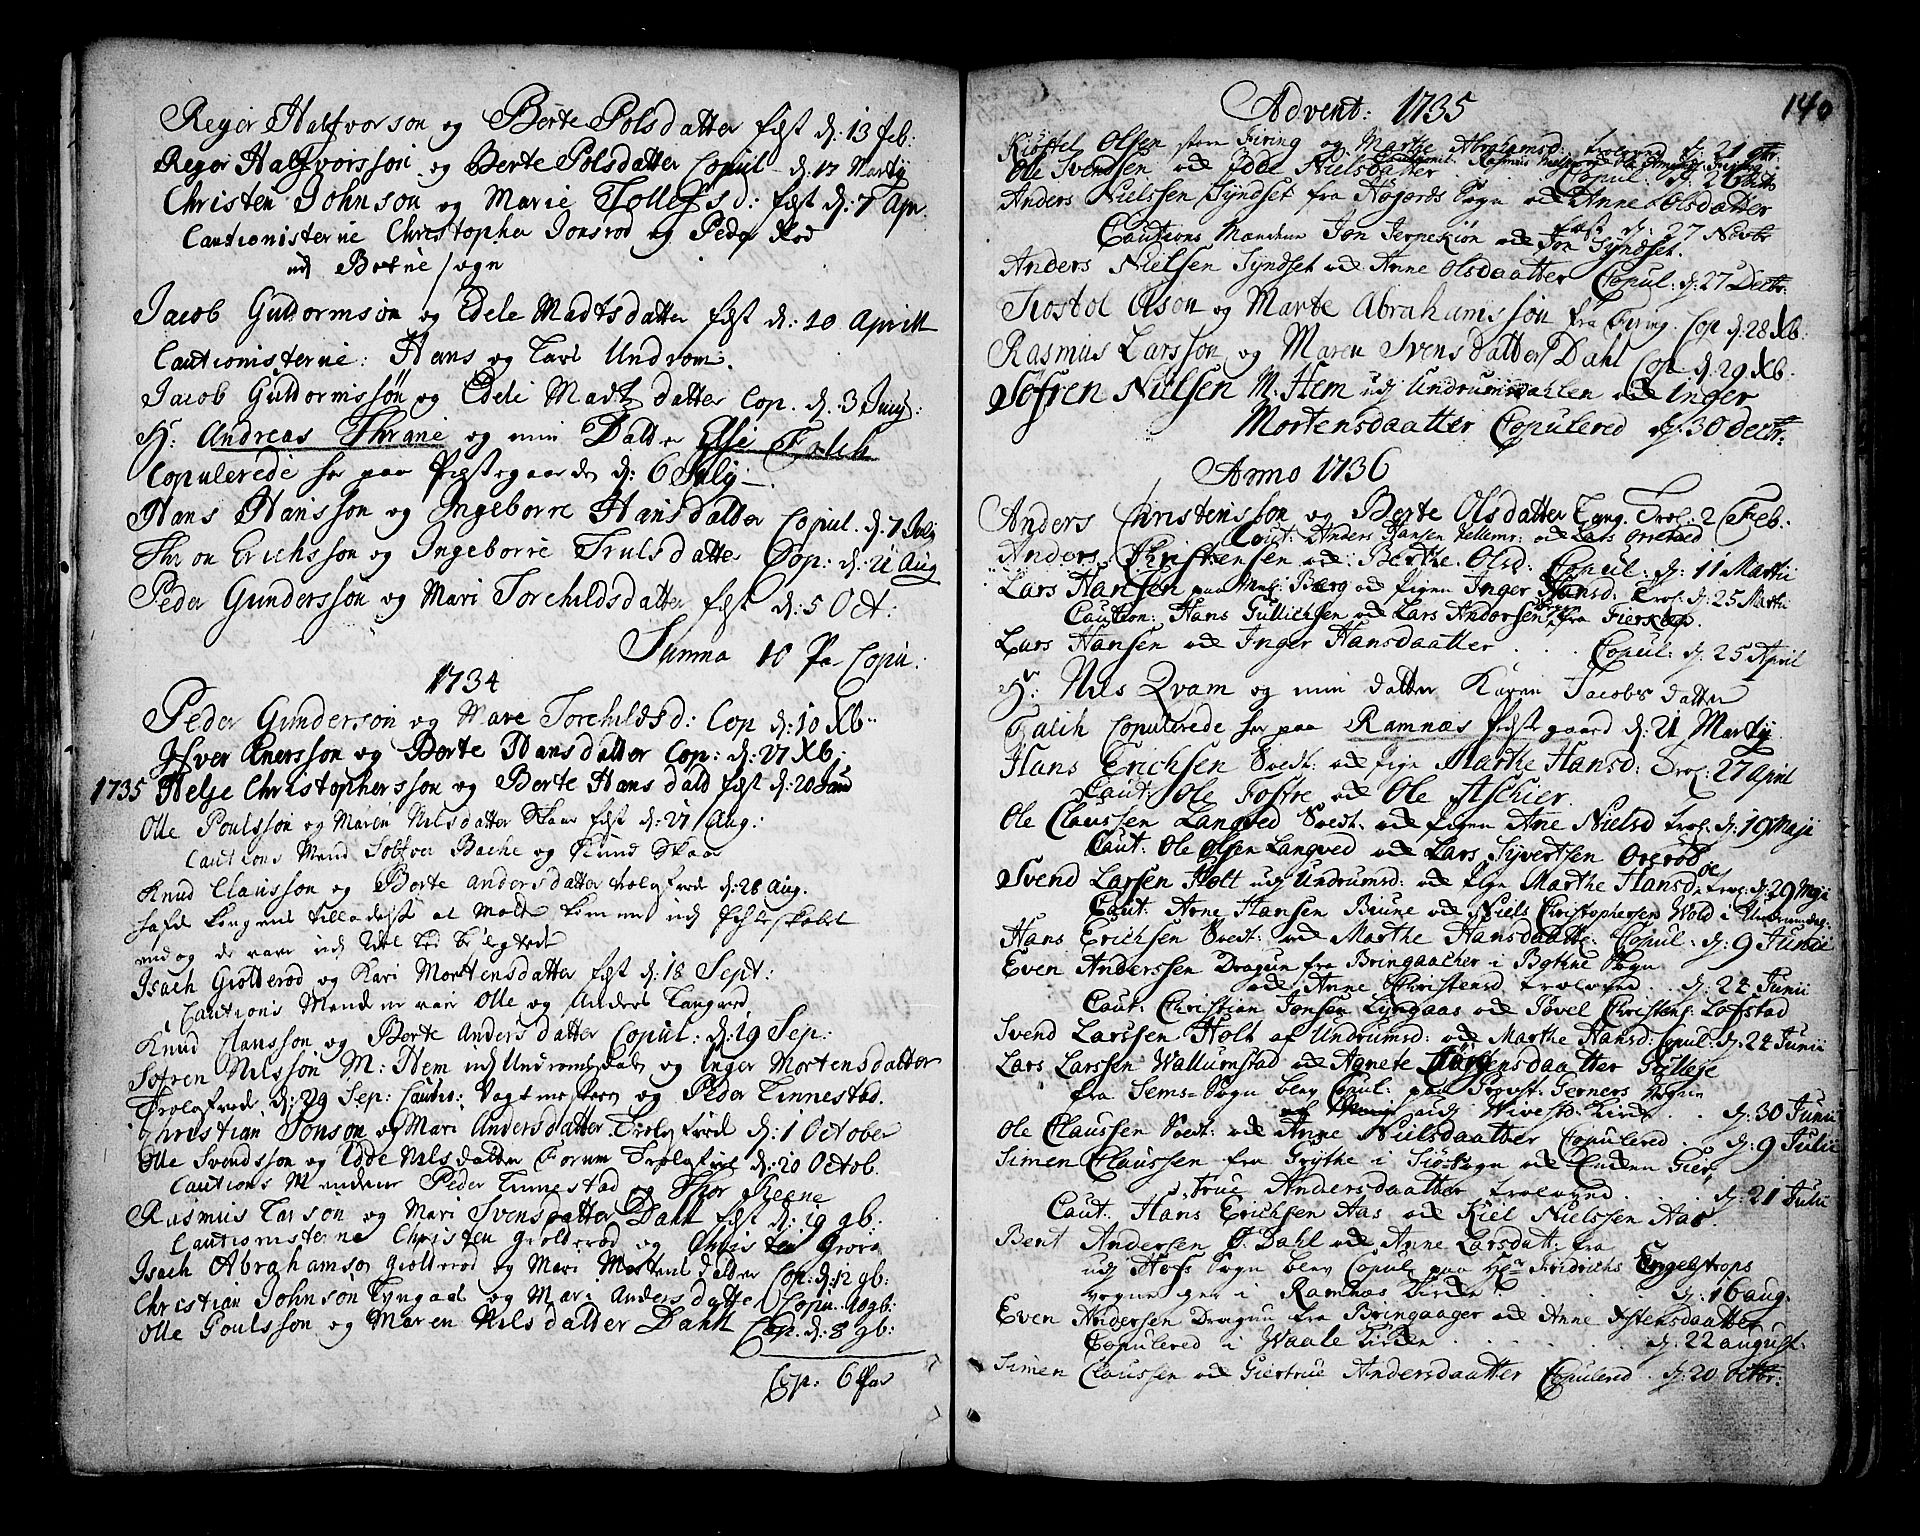 Reger Halfvorson og Berte Polsdatter fæst d: 13 feb:
Reger Halfvorsson og Berte Polsdatter Copul d: 17 Martij
Christen Johnson og Marie Tollefsd: fæst d: 7 Apr.
Cautionisterne Christopher Jonsrod og Peder Rod
udj Botne sogn
Jacob Guttormsøn og Edele Madtsdatter fæst d: 10 Aprill
Cautionisterne: Hans og Lars Undrom.
Jacob Guttormssøn og Edele Madtzdatter Cop. d. 3 Junij:
Hr: Andreas Thrane og min Datter Else Falch
Copulerede her paa Præstegaarden d: 6 Julij
Hans Hansson og Ingeborre Hansdatter Copul. d: 7 Julij
Thron Erichsson og Ingeborre Trulsdatter Cop: d: 21 Aug
Peder Gundersson og Mari Torchildsdatter fæst d: 5 Oct:
Summa 10 Par Copu:
1734
Peder Gunderson og Mare Torchildsd: Cop d: 10 Xb:
Ifver Enersson og Berte Hansdatter Cop: d: 27 Xb:
1735 Helje Christophersson og Berte Hansdatt fæst d: 20 Janu
Olle Poulsson og Maren Nilsdatter Skaar fæst d: 27 Aug:
Cautions Mend Sølfver Bache og Knud Skaar
Knud Clausson og Berte Andersdatter trolofvede d: 28 Aug.
hafde kongens tilladelse at motte komme udj Echteskabet
endog de vare udj besvogrede
Isach Giolterod og Kari Mortensdatter fæst d: 18 Sept:
Cautions Mendene vare Olle og Anders Langved
Knud Clausson og Berte Andersdatter Copul: d: 19 Sep:
Sofren Nilsson M: Hem udj Undromsdal og Inger Mortensdatter
Trolofvede d: 29 Sep: Cautis: Vagtmesteren og Peder Linnestad.
Christian Jonson og Mari Andersdatter Trolofvede d: 1 October
Olle Svendsson og Edde Nilsdatter Forum Trolofvede d: 10 Octob.
Cautions Mendene Peder Linnestad og Thor Keene
Rasmus Larson og Mari Svensdatter Dahl fæst d: 19 9b:
Cautionisterne Christen Giolterod og Christen Grorn
Isach Abrahamson Giolterod og Mari Mortensdatter Cop: d: 12 9b:
Christian Johnson Lyngaas og Mari Andersdatter Copu. 10 9b:
Olle Poulsson og Maren Nilsdatter Dahl Cop. d: 8 9b:
Cop: 6 Par
140
Advent: 1735
Kiøstel Olsen store Firing og Marthe Abrahamsd: troloved d: 21 8br:
Ole Svendsen od Edde Nielsdatter . . Copul: d: 26
Anders Nielssen Syndset fra Høgords Sogn od Anne Olsdaatter
fæst d: 27 Novbr
Cautions Mændene Jon Jernskiøn od Jon Syndset.
Anders Nielsen Syndset od Anne Olsdaatter Copul: d: 27 Decbr:
Kiostol Olson og Marte Abrahamssøn fra Firing. Cop d: 28 Xb:
Rasmus Larsson og Maren Svensdatter Dahl Cop d: 29 Xb.
Søfren Nielsen M: Hem udj Undrumsdahlen od Inger
Mortensdaatter Copulered d: 30 Decbr:
Anno 1736
Anders Christensson og Berte Olsdatter Lang. Trol: 2 Feb:
Caut: Anders Hansen Vellemr: od Lars Orrerød
Anders Christensen od Berthe Olsd: Copul: d: 11 Martii
Lars Hansen paa Mul: Bærg od pigen Inger Hansd: Trol: d: 25 Martii
Caution: Hans Gullichsen od Lars Andorsen fra Fierskop.
Lars Hansen od Inger Hansdaatter . . . Copul: d: 25 April
Hr: Nils Qvam og min datter Karen Jacobsdatter
Falch Copulerede her paa Ramnæs præstgaard d: 21 Martij
Hans Erichsen Soedt: od pigen Marthe Hansd: Trol: 27 April
Caut: Ole Fostre od Ole Aschier.
Ole Claussen Langved Soedt: od pigen Ane Nielsd trol: d: 19 Maji
Caut: Ole Olsen Langved od Lars Syvertsen Orerød
Svend Larsen Holt udj Undrumsd: od pigen Marthe Hansd: trol: d: 29 Maji
Caut: Arne Hansen Biune od Niels Christophersen Wold i Undrumsdag:
Hans Erichsen Soedt: od Marthe Hansdaatter: Copul: d: 9 Junii
Even Anderssen Dragun fra Bringaacher i Bothne Sogn
od Anne Christensd trolovved . . d: 24 Junii
Caut: Christian Jonsen Lyngaas od Povel Christens: Lofstad
Svend Larssen Holt af Undrumsd: od Marthe Hansd: Copul: d: 24 Junii
Lars Larssen Wallumstad od Agnete Jørgensdaatter Gyllege
fra Sems-Sogn blev Copul: paa Provst Gerners Vegne
udj Vivestd: Kirke . . d: 30 Junii
Ole Claussen Soedt: od Anne Nielsdaatter Copulered . d: 9 Julii
Simen Claussen fra Grythe i Siø-Sogn od Enken Gier-
true Andersdaatter trolovved . . . d: 21 Julii
Caut. Hans Erichsen Aas od Kiel Nielssen Aas.
Bent Andersen S. Dahl od Anne Larsdatt: fra
udj Hofs Sogn blev Copul: paa Hr: Fridrichs Engelstrops
vegne her i Ramnæs Kirke . . . d: 16 aug.
Even Andersen Dragun fra Bringaager od Anne Estensdaatter
Copulered i Waale Kirken . . . . d: 22 august.
Simen Claussen od Giertrue Andersdaatter Copulered . d: 20 Octbr: